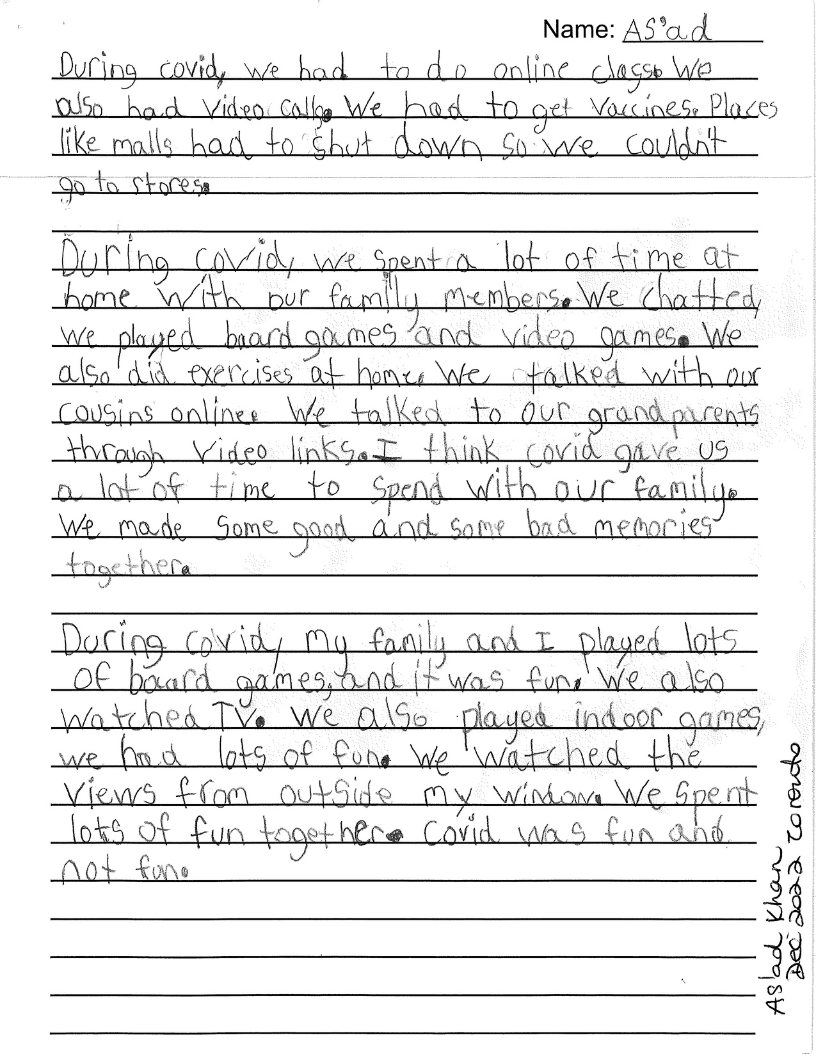 Name: AS'ad
During covid, we had to do online class. We
also had video calls. We had to get vaccines. Places
like malls had to shut down so we couldn't
go to stores.
During covid, we spent a lot of time at
home with our family members. We chatted,
we played board games and video games. We
also did exercises at home. We talked with our
cousins online. We talked to our grandparents
through video links. I think covid gave us
a lot of time to spend with our family.
We made some good and some bad memories
together.
During covid, my family and I played lots
of board games, and it was fun. We also
watched TV. We also played indoor games,
we had lots of fun. We watched the
views from outside my window. We spent
lots of fun together. Covid was fun and
not fun.
As'ad Khan
Dec 2022 Toronto